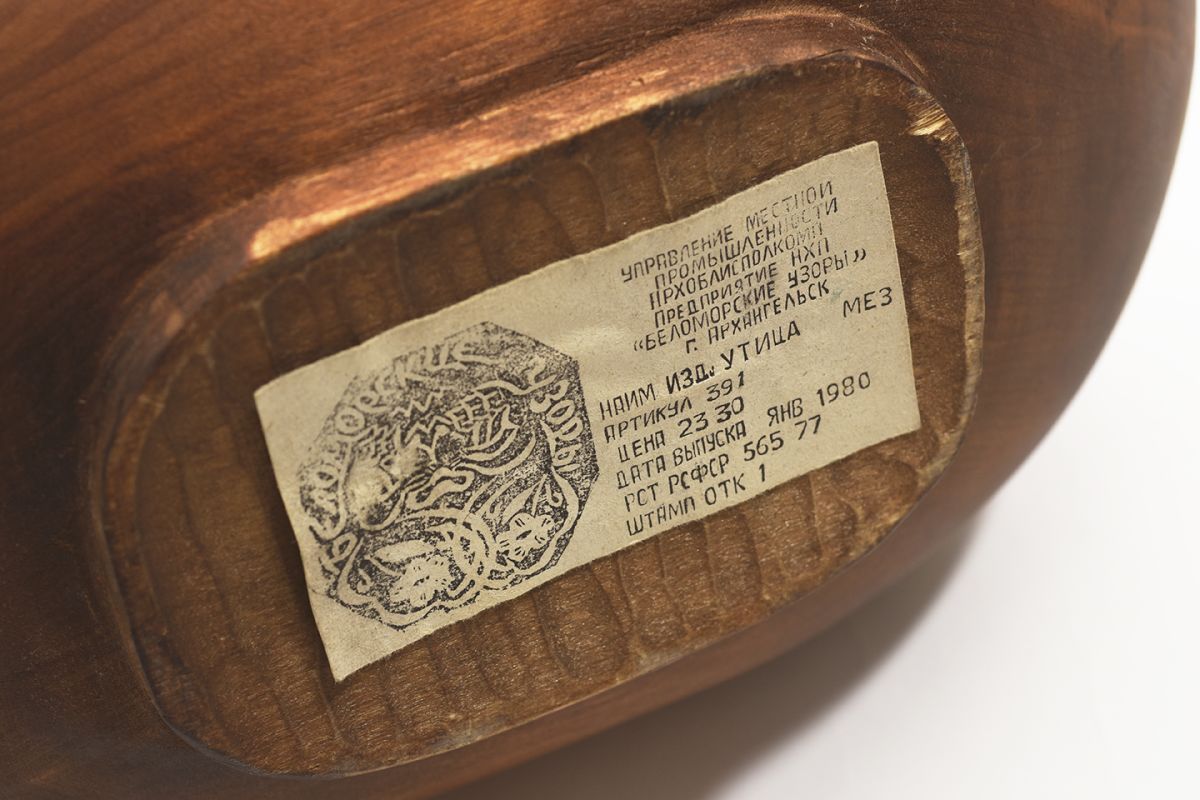 БЕЛОМОРСКИЕ УЗОРЫ
УПРАВЛЕНИЕ МЕСТНОЙ
ПРОМЫШЛЕННОСТИ
АРХОБЛИСПОЛКОМА
ПРЕДПРИЯТИЕ НХП
«БЕЛОМОРСКИЕ УЗОРЫ»
Г. АРХАНГЕЛЬСК
МЕЗ
НАИМ ИЗД. УТИЦА
АРТИКУЛ 391
ЦЕНА 23 30
ДАТА ВЫПУСКА ЯНВ 1980
РСТ РСФСР 565 77
ШТАМП ОТК 1